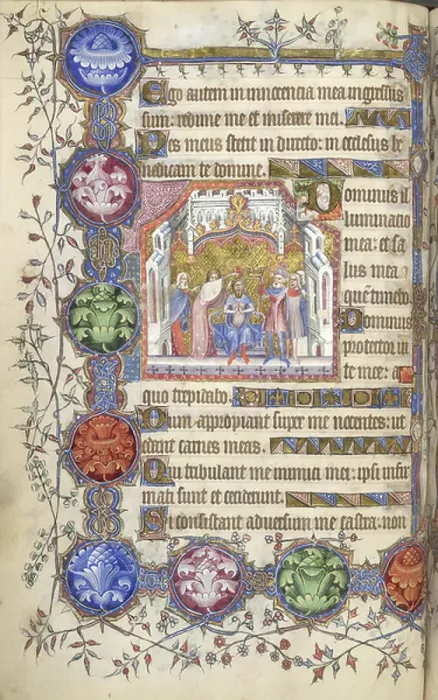 Ego autem in innocencia mea ingressus
sum: redime me et miserere mei.
Pes meus stetit in directo: in ecclesiis be
nedicam te domine.
Dominus il
luminacio
mea: et sa
lus mea
quem timebo
Dominus
protector ui
te mee: a
quo trepidabo.
Dum appropiant super me nocentes: ut
edant carnes meas.
Qui tribulant me inimici mei: ipsi infir
mati sunt et ceciderunt.
Si consistant aduersum me castra: non